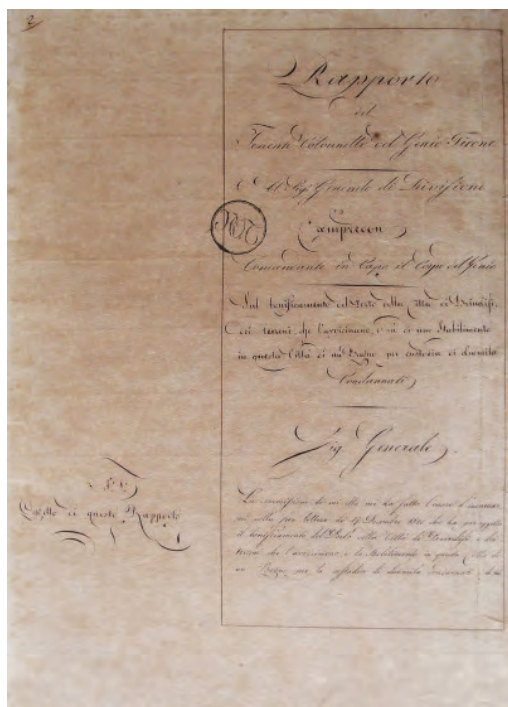 2
Rapporto
del
Tenente Colonnello del Genio Tirone
Al Sig. Generale di Divisione
Campredon
Comandante in Capo il Corpo del Genio
Sul bonificamento del Porto della Città di Brindisi,
dei terreni, che l'avvicinano, e di uno Stabilimento
in questa Città di un Bagno per custodia di duemila
Condannati
Sig. Generale
§. 1.
Oggetto di questo Rapporto
La commissione di cui ella mi ha fatto l'onore d'incaricar
mi colla sua lettera de' 19 Dicembre che ha per oggetto
il bonificamento del Porto della Città di Brindisi, e dei
terreni che l'avvicinano, e lo Stabilimento in questa Città di
un Bagno per la custodia di duemila condannati